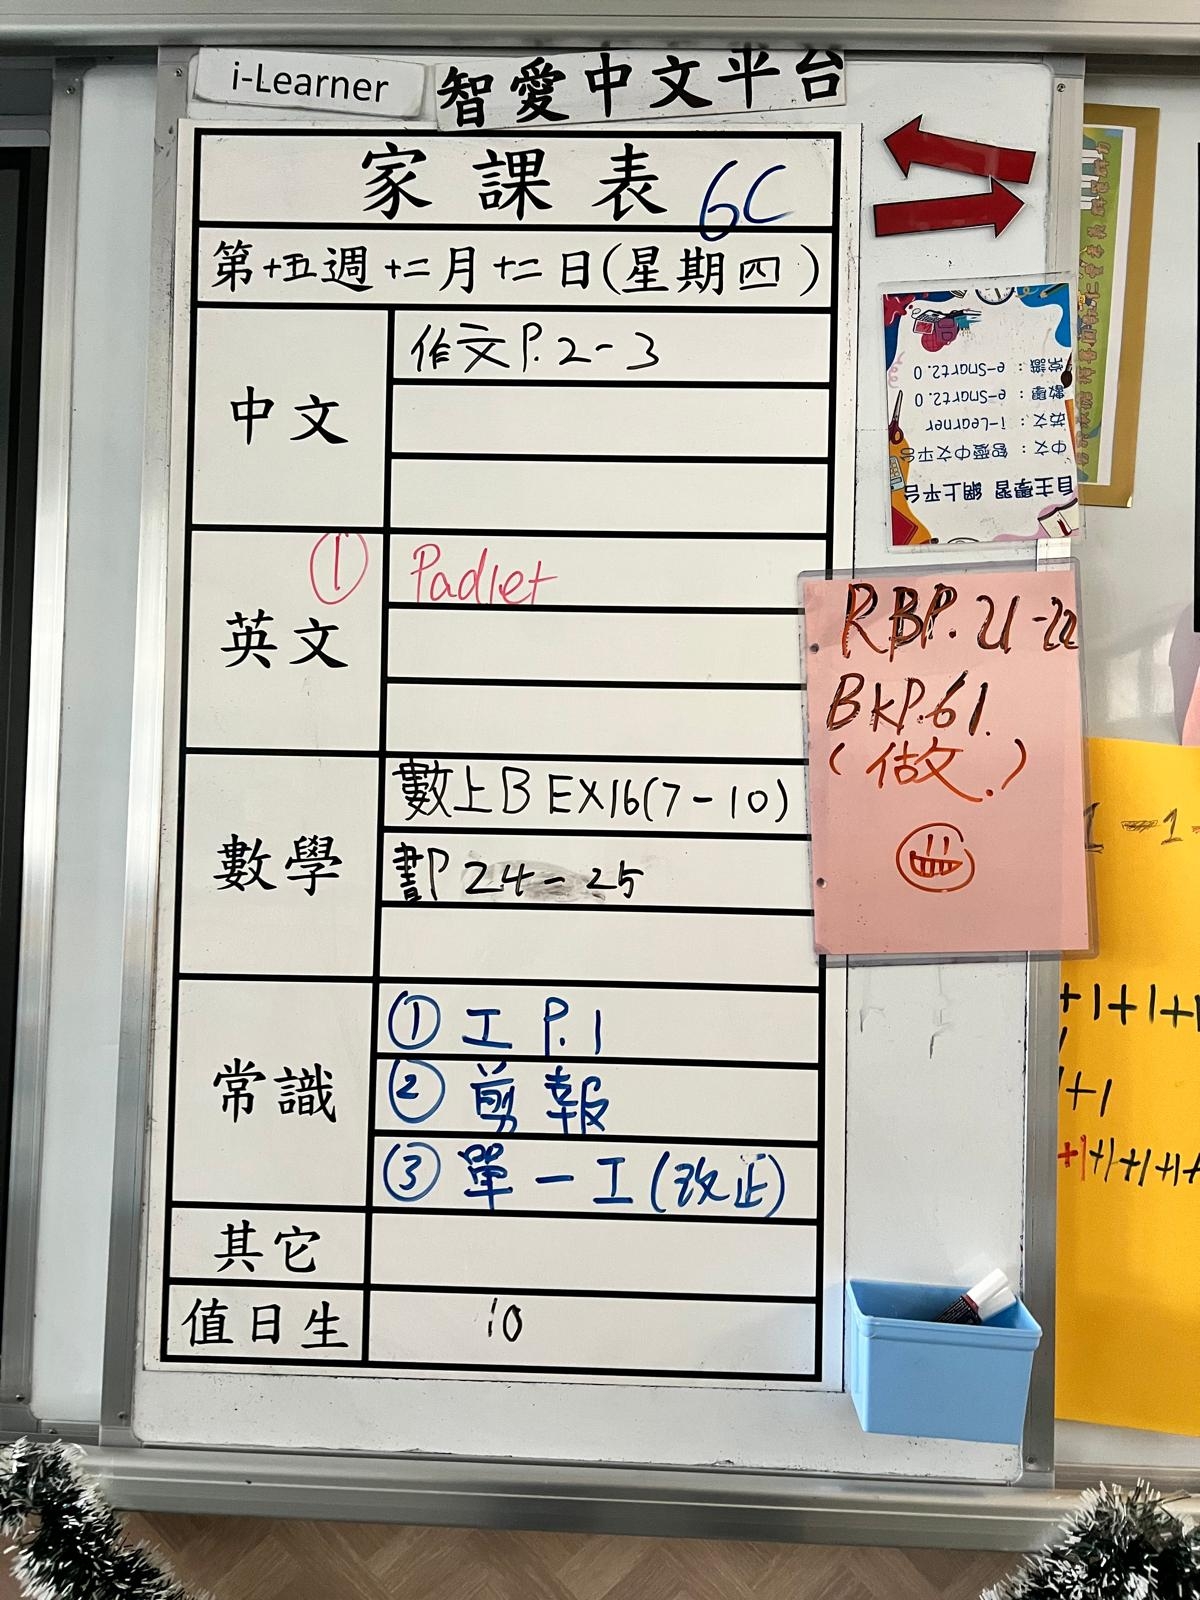 i-Learner 智愛中文平台
家課表 6C
第十五週 十二月十二日(星期四)
中文
作文P.2-3
英文
① Padlet
數學
數上B EX16(7-10)
書P 24-25
常識
① 工 P.1
② 剪報
③ 單一工(改正)
其它
值日生
10
自主學習 網上平台
中文：智愛中文平台
英文：i-Learner
數學：e-Smart2.0
常識：e-Smart2.0
RBP.21-22
BKP.61.
(做文.)
+1+1+1
+1
+1+1+1+1+